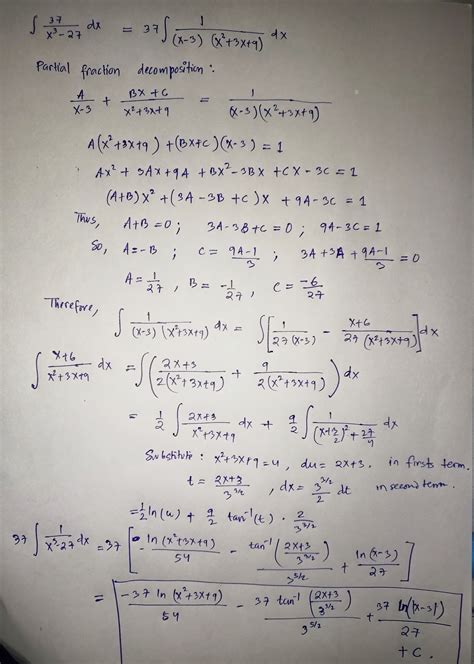 ∫ 37/(x³-27) dx = 37∫ 1/((x-3)(x²+3x+9)) dx
Partial fraction decomposition :
A/(x-3) + (Bx+C)/(x²+3x+9) = 1/((x-3)(x²+3x+9))
A(x²+3x+9) + (Bx+C)(x-3) = 1
Ax² + 3Ax + 9A + Bx² - 3Bx + Cx - 3C = 1
(A+B)x² + (3A - 3B + C)x + 9A - 3C = 1
Thus, A+B = 0 ; 3A-3B+C = 0 ; 9A-3C = 1
So, A = -B ; C = (9A-1)/3 ; 3A + 3A + (9A-1)/3 = 0
A = 1/27 , B = -1/27 , C = -6/27
Therefore,
∫ 1/((x-3)(x²+3x+9)) dx = ∫[1/(27(x-3)) - (x+6)/(27(x²+3x+9))] dx
∫ (x+6)/(x²+3x+9) dx = ∫((2x+3)/(2(x²+3x+9)) + 9/(2(x²+3x+9))) dx
= 1/2 ∫ (2x+3)/(x²+3x+9) dx + 9/2 ∫ 1/((x+3/2)²+27/4) dx
Substitute : x²+3x+9 = u , du = 2x+3 . in firsts term.
t = (2x+3)/3^(3/2) , dx = 3^(3/2)/2 dt in second term.
= 1/2 ln(u) + 9/2 tan⁻¹(t) · 2/3^(3/2)
37 ∫ 1/(x³-27) dx = 37 [ - ln(x²+3x+9)/54 - tan⁻¹((2x+3)/3^(3/2))/3^(5/2) + ln(x-3)/27 ]
= -37 ln(x²+3x+9)/54 - 37 tan⁻¹((2x+3)/3^(3/2))/3^(5/2) + 37 ln(|x-3|)/27
+ C .